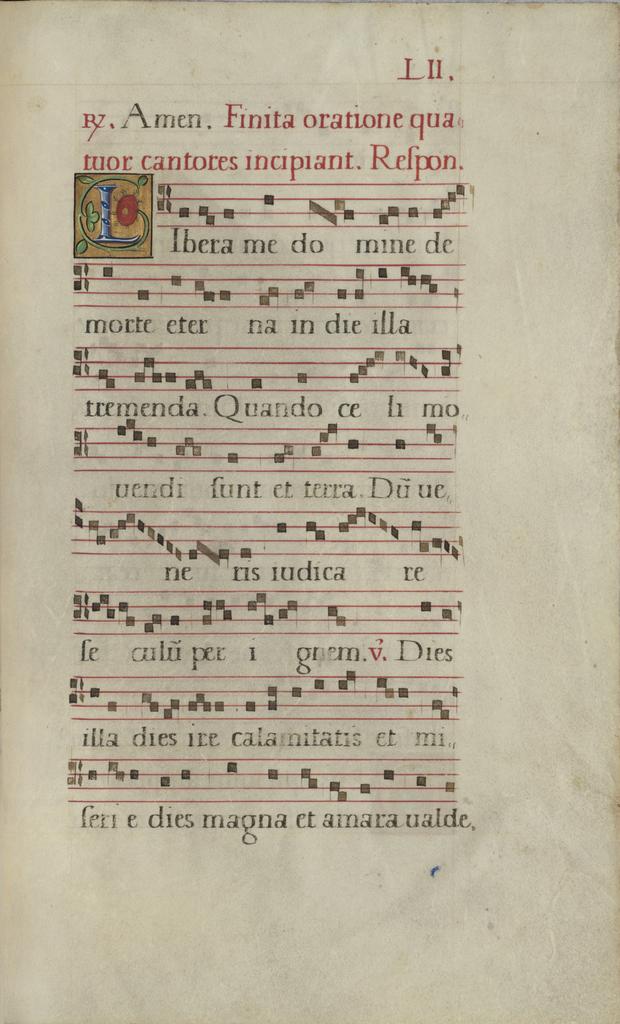 LII.
℟. Amen. Finita oratione qua
tuor cantores incipiant. Respon.
Libera me do mine de
morte eter na in die illa
tremenda. Quando ce li mo,,
uendi sunt et terra. Dū ue,,
ne ris iudica re
se culū per i gnem. ℣. Dies
illa dies ire calamitatis et mi,,
seri e dies magna et amara ualde,